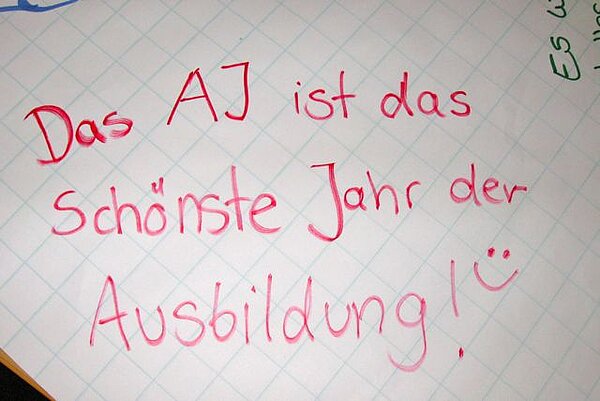 Das AJ ist das
schönste Jahr der
Ausbildung! :)
Es